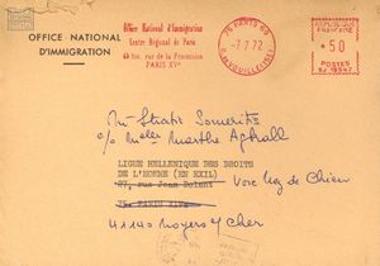 OFFICE · NATIONAL
D'IMMIGRATION
Office National d'Immigration
Centre Régional de Paris
rue de la Procession
PARIS XVe
75 PARIS 69
-7-7 72
R. DE VOUILLE (15E)
REPUBLIQUE
FRANCAISE
50
POSTES
Mr Stratis Someritis
c/o Melle Marthe
LIGUE HELLENIQUE DES DROITS
DE L'HOMME (EN EXIL)
27, rue Jean Dolent
Voie Noz de Chien
75 PARIS XIVe
41140 Noyers s/ Cher